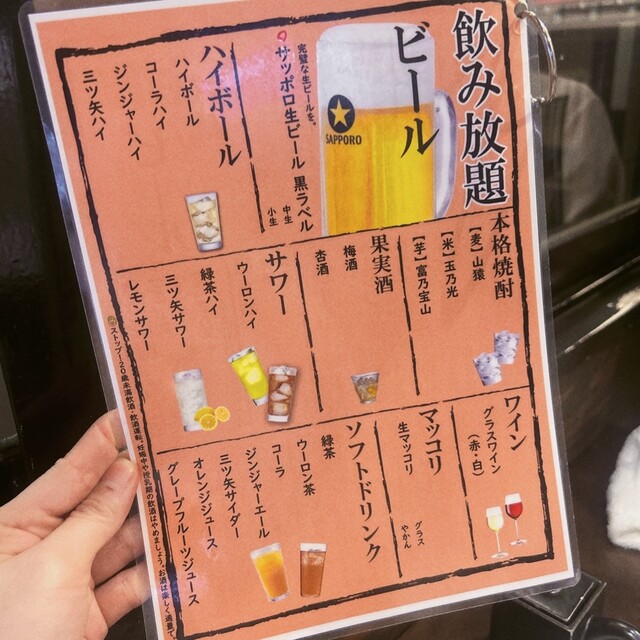 飲み放題
ビール
SAPPORO
完璧な生ビールを。
サッポロ生ビール 黒ラベル
中生
小生
ハイボール
ハイボール
コーラハイ
ジンジャーハイ
三ツ矢ハイ
本格焼酎
【麦】山猿
【米】玉乃光
【芋】富乃宝山
果実酒
梅酒
杏酒
サワー
ウーロンハイ
緑茶ハイ
三ツ矢サワー
レモンサワー
ワイン
グラスワイン
(赤・白)
マッコリ
生マッコリ
グラス
やかん
ソフトドリンク
緑茶
ウーロン茶
コーラ
ジンジャーエール
三ツ矢サイダー
オレンジジュース
グレープフルーツジュース
ストップ!20歳未満飲酒・飲酒運転。妊娠中や授乳期の飲酒はやめましょう。お酒は楽しく適量で